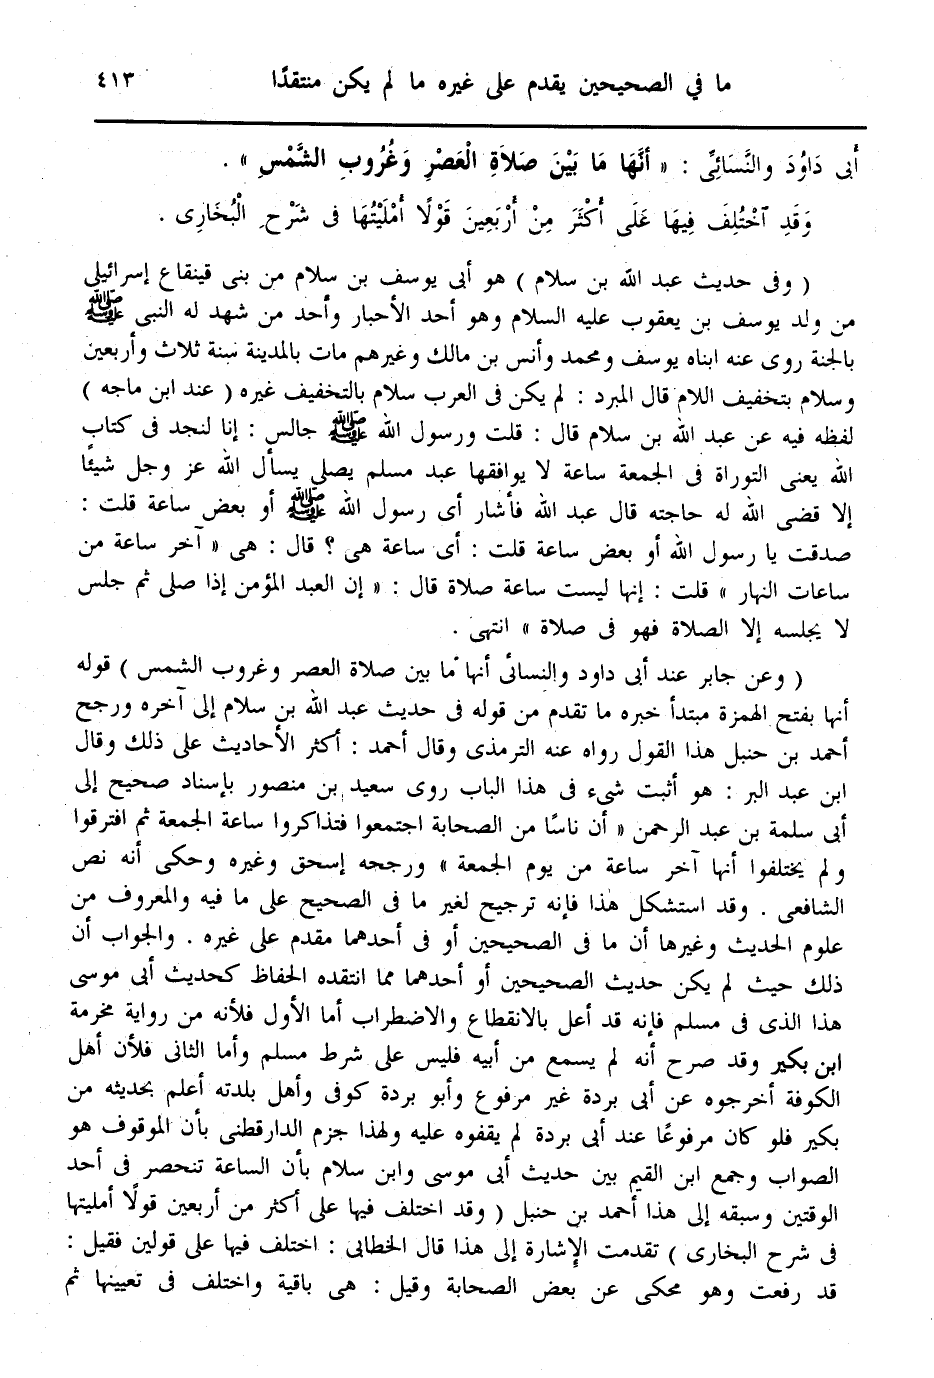 ما في الصحيحين يقدم على غيره ما لم يكن منتقدًا ٤١٣
أَبى دَاوُدَ والنَّسَائِىِّ : « أَنَّهَا مَا بَيْنَ صَلَاةِ الْعَصْرِ وَغُرُوبِ الشَّمْسِ » .
وَقَدِ ٱخْتُلِفَ فِيهَا عَلَى أَكْثَرَ مِنْ أَرْبَعِينَ قَوْلًا أَمْلَيْتُهَا فى شَرْحِ الْبُخَارِى .
( وفى حديث عبد الله بن سلام ) هو أبى يوسف بن سلام من بنى قينقاع إسرائيلى
من ولد يوسف بن يعقوب عليه السلام وهو أحد الأحبار وأحد من شهد له النبى ﷺ
بالجنة روى عنه ابناه يوسف ومحمد وأنس بن مالك وغيرهم مات بالمدينة سنة ثلاث وأربعين
وسلام بتخفيف اللام قال المبرد : لم يكن فى العرب سلام بالتخفيف غيره ( عند ابن ماجه )
لفظه فيه عن عبد الله بن سلام قال : قلت ورسول الله ﷺ جالس : إنا لنجد فى كتاب
الله يعنى التوراة فى الجمعة ساعة لا يوافقها عبد مسلم يصلى يسأل الله عز وجل شيئًا
إلا قضى الله له حاجته قال عبد الله فأشار أى رسول الله ﷺ أو بعض ساعة قلت :
صدقت يا رسول الله أو بعض ساعة قلت : أى ساعة هى ؟ قال : هى « آخر ساعة من
ساعات النهار » قلت : إنها ليست ساعة صلاة قال : « إن العبد المؤمن إذا صلى ثم جلس
لا يجلسه إلا الصلاة فهو فى صلاة » انتهى .
( وعن جابر عند أبى داود والنسائى أنها ما بين صلاة العصر وغروب الشمس ) قوله
أنها بفتح الهمزة مبتدأ خبره ما تقدم من قوله فى حديث عبد الله بن سلام إلى آخره ورجح
أحمد بن حنبل هذا القول رواه عنه الترمذى وقال أحمد : أكثر الأحاديث على ذلك وقال
ابن عبد البر : هو أثبت شىء فى هذا الباب روى سعيد بن منصور بإسناد صحيح إلى
أبى سلمة بن عبد الرحمن « أن ناسًا من الصحابة اجتمعوا فتذاكروا ساعة الجمعة ثم افترقوا
ولم يختلفوا أنها آخر ساعة من يوم الجمعة » ورجحه إسحق وغيره وحكى أنه نص
الشافعى . وقد استشكل هذا فإنه ترجيح لغير ما فى الصحيح على ما فيه والمعروف من
علوم الحديث وغيرها أن ما فى الصحيحين أو فى أحدهما مقدم على غيره . والجواب أن
ذلك حيث لم يكن حديث الصحيحين أو أحدهما مما انتقده الحفاظ كحديث أبى موسى
هذا الذى فى مسلم فإنه قد أعل بالانقطاع والاضطراب أما الأول فلأنه من رواية مخرمة
ابن بكير وقد صرح أنه لم يسمع من أبيه فليس على شرط مسلم وأما الثانى فلأن أهل
الكوفة أخرجوه عن أبى بردة غير مرفوع وأبو بردة كوفى وأهل بلدته أعلم بحديثه من
بكير فلو كان مرفوعًا عند أبى بردة لم يقفوه عليه ولهذا جزم الدارقطنى بأن الموقوف هو
الصواب وجمع ابن القيم بين حديث أبى موسى وابن سلام بأن الساعة تنحصر فى أحد
الوقتين وسبقه إلى هذا أحمد بن حنبل ( وقد اختلف فيها على أكثر من أربعين قولًا أمليتها
فى شرح البخارى ) تقدمت الإشارة إلى هذا قال الخطابى : اختلف فيها على قولين فقيل :
قد رفعت وهو محكى عن بعض الصحابة وقيل : هى باقية واختلف فى تعيينها ثم